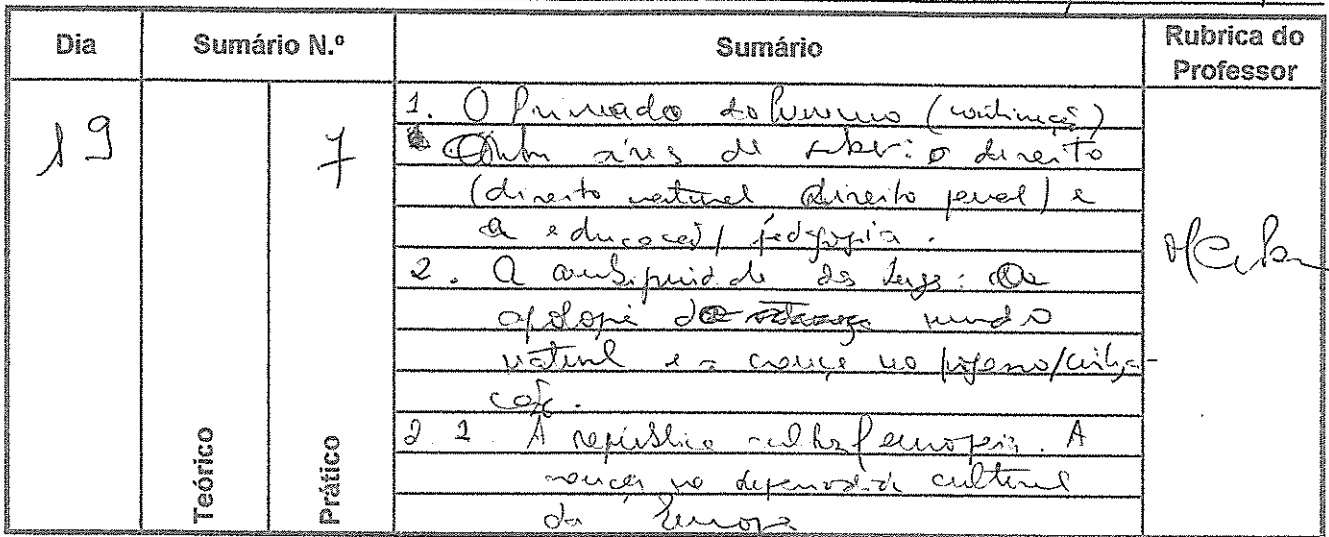 Dia
Sumário N.º
Sumário
Rubrica do
Professor
19
7
Teórico
Prático
1. O Primado do humano (continuação)
áreas de saber: o direito
(direito natural direito penal) e
a educação / pedagogia.
2. A ambiguidade das Luzes: a
apologia do mundo
natural e a crença no progresso/civiliza-
ção.
2.1. A república cultural europeia. A
crença na cultural
da Europa